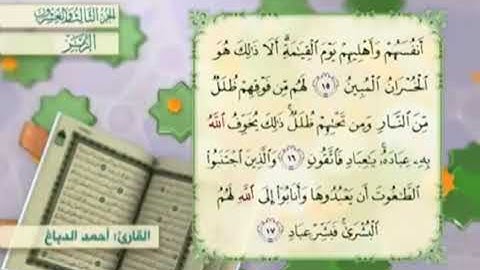 الجزء الثالث والعشرون
الزمر
أَنفُسَهُمْ وَأَهْلِيهِمْ يَوْمَ الْقِيَٰمَةِۗ أَلَا ذَٰلِكَ هُوَ
الْخُسْرَانُ الْمُبِينُ ١٥ لَهُم مِّن فَوْقِهِمْ ظُلَلٌ
مِّنَ النَّارِ وَمِن تَحْتِهِمْ ظُلَلٌۚ ذَٰلِكَ يُخَوِّفُ اللَّهُ
بِهِۦ عِبَادَهُۥۚ يَٰعِبَادِ فَاتَّقُونِ ١٦ وَالَّذِينَ اجْتَنَبُوا
الطَّٰغُوتَ أَن يَعْبُدُوهَا وَأَنَابُوٓا إِلَى اللَّهِ لَهُمُ
الْبُشْرَىٰۚ فَبَشِّرْ عِبَادِ ١٧
القارئ: أحمد الدباغ